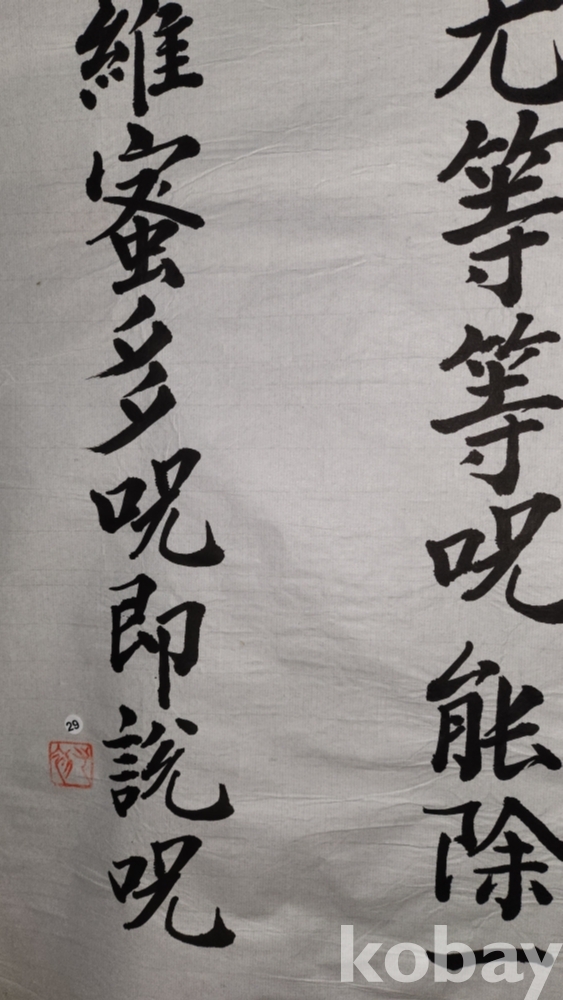 无等等呪能除一
羅蜜多呪即說呪
29
kobay